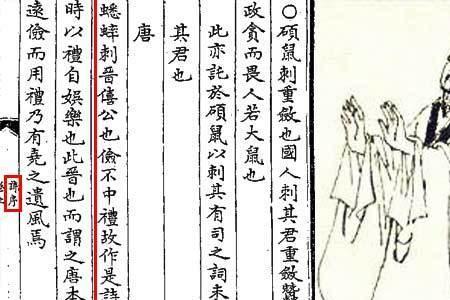 ○碩鼠刺重斂也國人刺其君重斂蠶
政貪而畏人若大鼠也
此亦託於碩鼠以刺其有司之詞未
其君也
唐
蟋蟀刺晉僖公也儉不中禮故作是詩
時以禮自娛樂也此晉也而謂之唐本
遠儉而用禮乃有堯之遺風焉
詩序